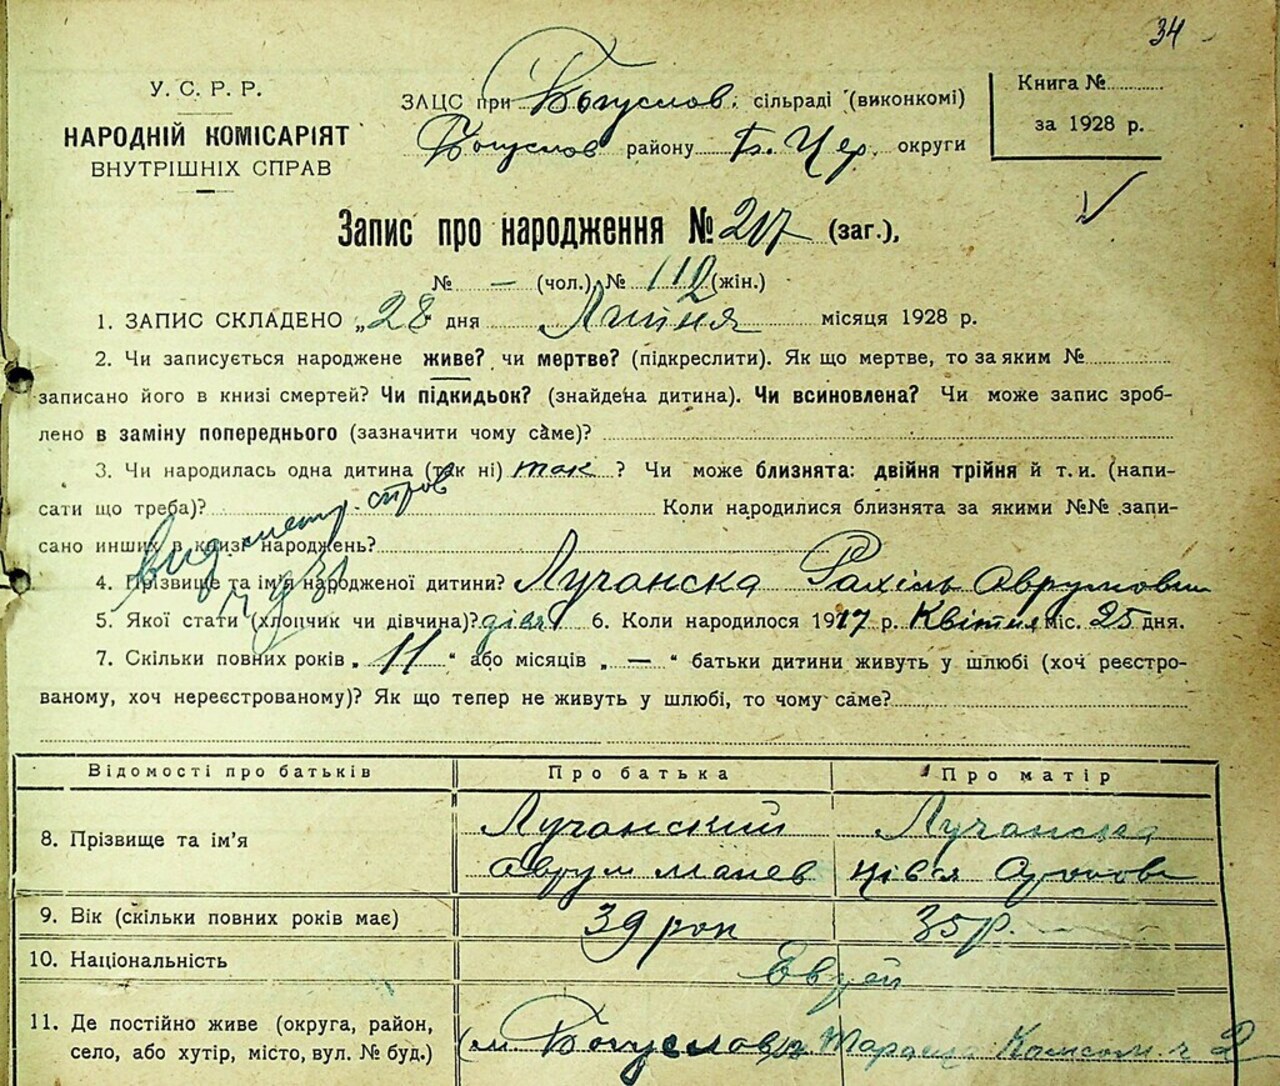 34
У. С. Р. Р.
НАРОДНІЙ КОМІСАРІЯТ
ВНУТРІШНІХ СПРАВ
ЗАЦС при Богуслов. сільраді (виконкомі)
Богуслов району Б. Цер. округи
Книга №
за 1928 р.
Запис про народження № 217 (заг.),
№ — (чол.) № 112 (жін.)
1. ЗАПИС СКЛАДЕНО „28 дня Липня місяця 1928 р.
2. Чи записується народжене живе? чи мертве? (підкреслити). Як що мертве, то за яким №
записано його в книзі смертей? Чи підкидьок? (знайдена дитина). Чи всиновлена? Чи може запис зроб-
лено в заміну попереднього (зазначити чому саме)?
3. Чи народилась одна дитина (так ні) так ? Чи може близнята: двійня трійня й т. и. (напи-
сати що треба)? Коли народилися близнята за якими №№ запи-
сано инших в книзі народжень?
вид метр. спров
4. Прізвище та ім'я народженої дитини? Лучанска Рахіль Аврумовн
5. Якої стати (хлопчик чи дівчина)? дівч 6. Коли народилося 1917 р. Квітня міс. 25 дня.
7. Скільки повних років „ 11 “ або місяців „ — “ батьки дитини живуть у шлюбі (хоч реєстро-
ваному, хоч нереєстрованому)? Як що тепер не живуть у шлюбі, то чому саме?
Відомості про батьків Про батька Про матір
8. Прізвище та ім'я Лучанский Лучанска
Аврум Манев Цівя
9. Вік (скільки повних років має) 39 рок 35 р.
10. Національність Евреи
11. Де постійно живе (округа, район,
село, або хутір, місто, вул. № буд.) (м. Богуслов 2